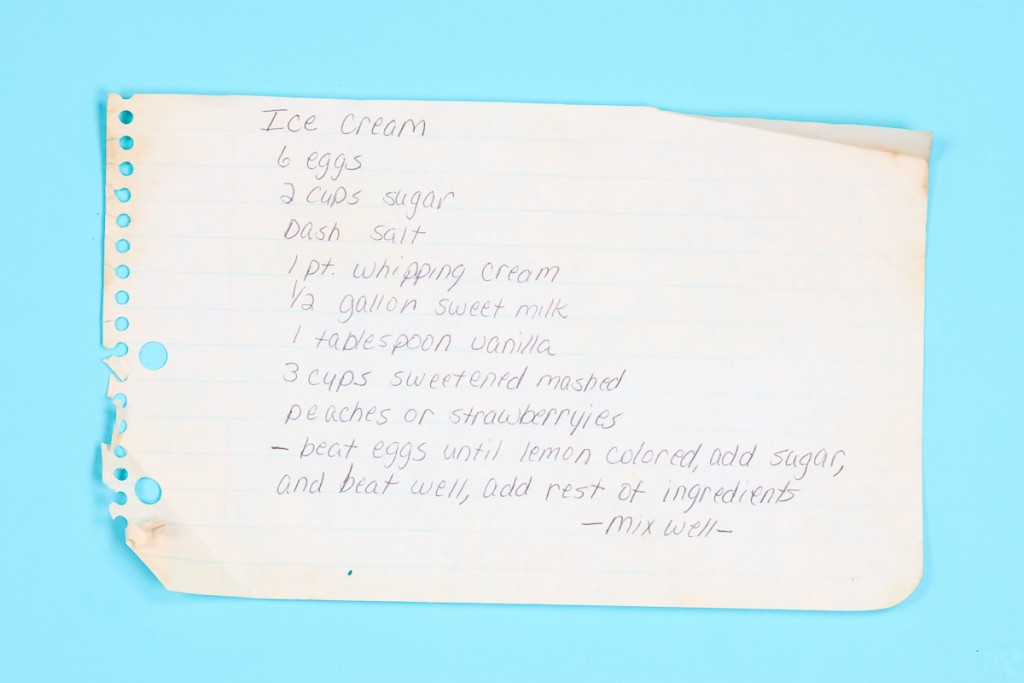 Ice cream
6 eggs
2 cups sugar
Dash salt
1 pt. whipping cream
1/2 gallon sweet milk
1 tablespoon vanilla
3 cups sweetened mashed
peaches or strawberryies
- beat eggs until lemon colored, add sugar,
and beat well, add rest of ingredients
- mix well -